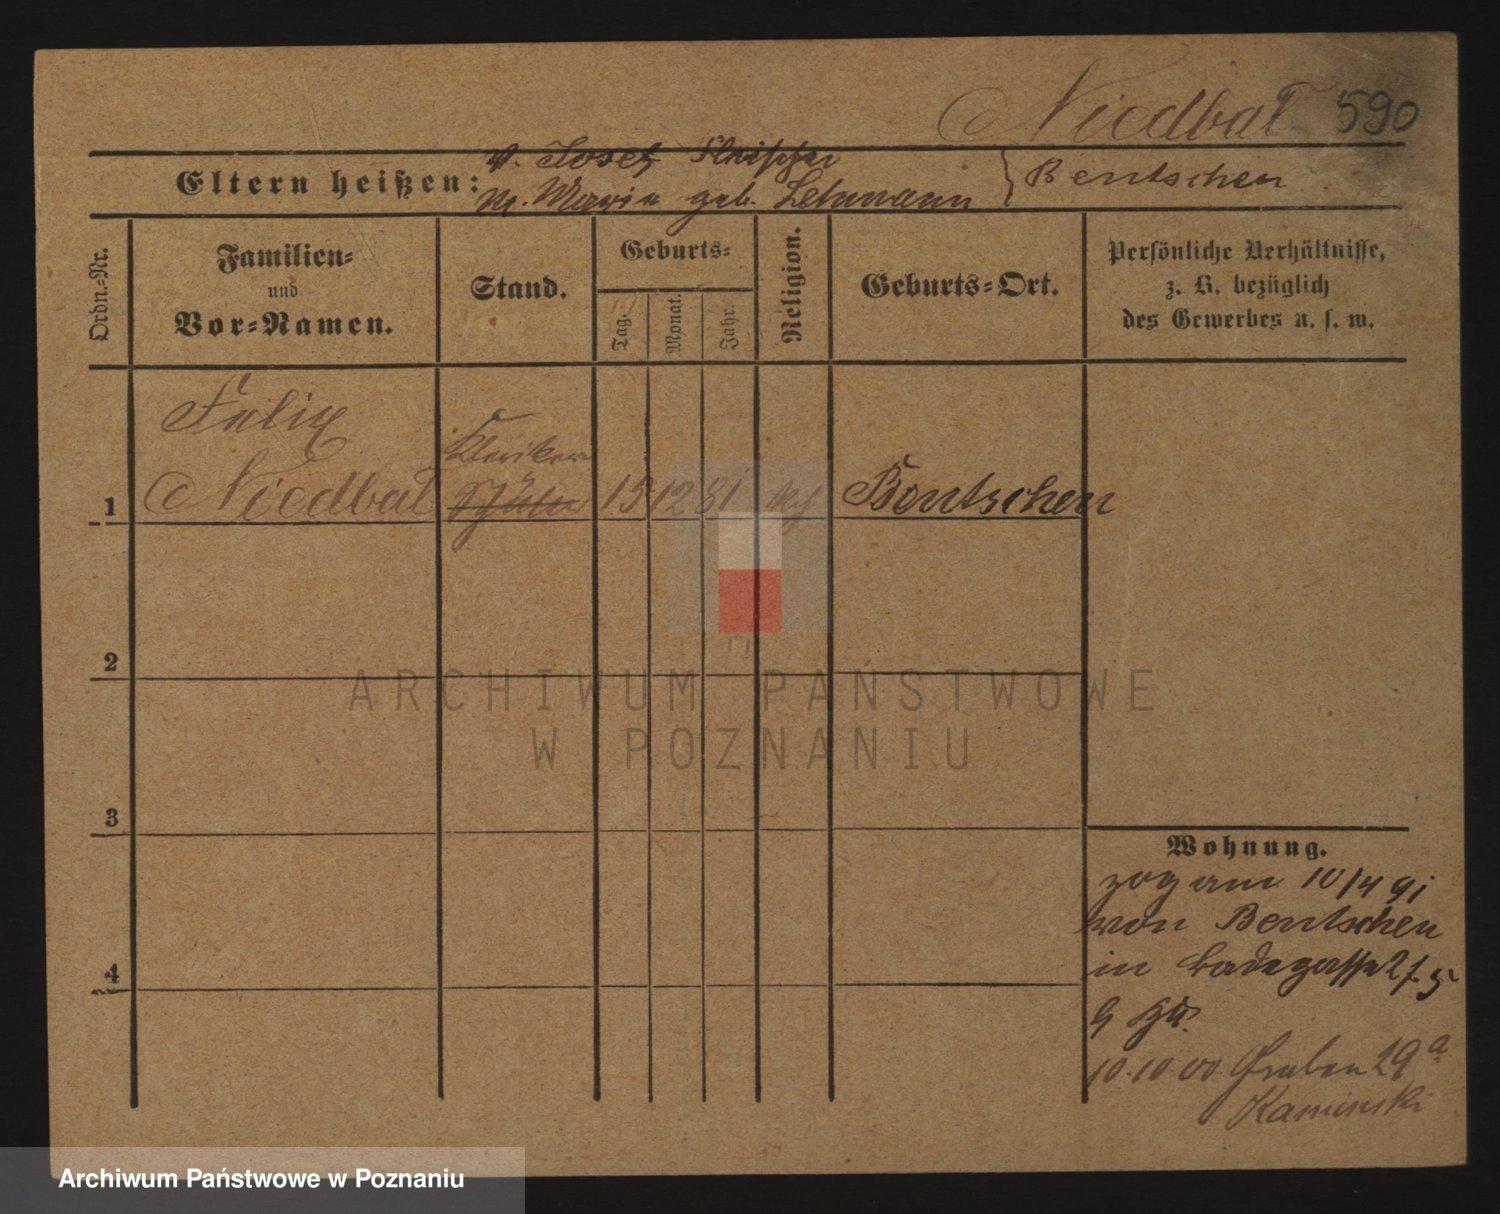 Niedbal 590
Eltern heißen:
v. Josef Fleischer
m. Maria geb. Lehmann
Bentschen
Ordn.-Nr.
Familien-
und
Vor-Namen.
Stand.
Geburts-
Tag.
Monat.
Jahr.
Religion.
Geburts-Ort.
Persönliche Verhältnisse,
z. B. bezüglich
des Gewerbes u. s. w.
Felix
Kleriker
1 Niedbal Schüler 15 12 81 kath Bentschen
2
3
4
Wohnung.
zog am 10/4 91
von Bentschen
in Badegasse 2
10.10.00 Graben 29 a
Kaminski
ARCHIWUM PAŃSTWOWE
W POZNANIU
Archiwum Państwowe w Poznaniu